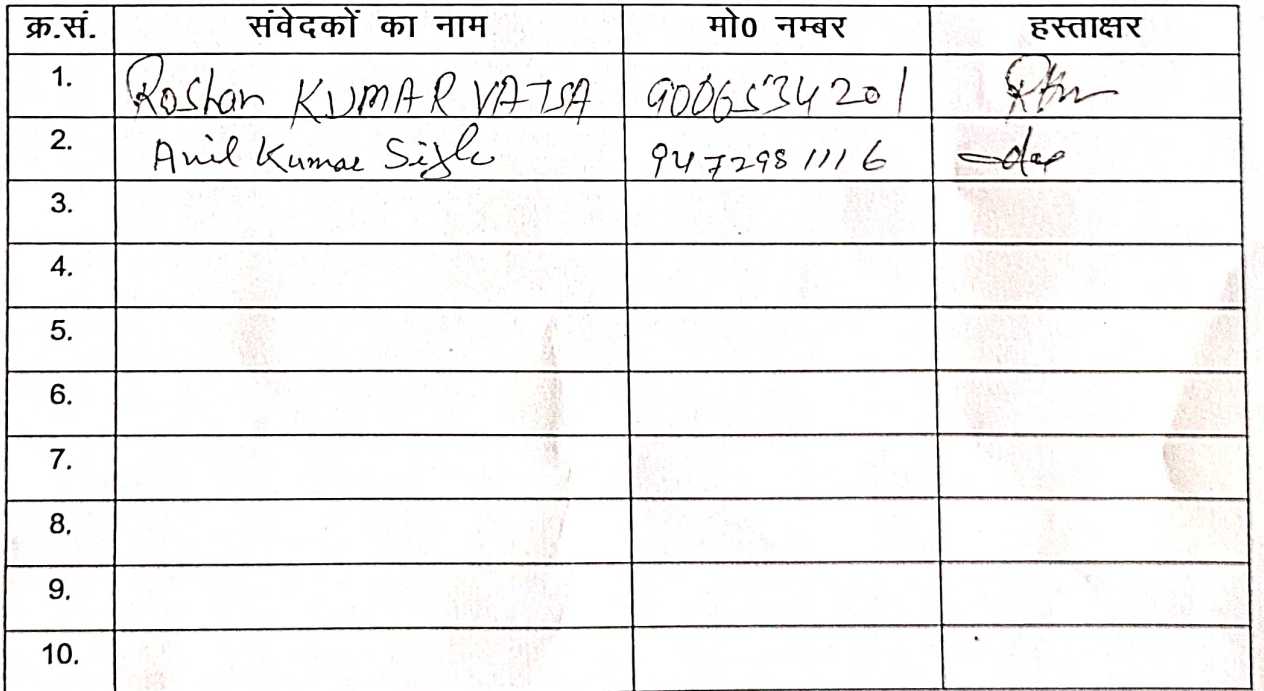 क्र.सं. संवेदकों का नाम मो0 नम्बर हस्ताक्षर
1. Roshan KUMAR VATSA 9006534201
2. Anil Kumar 9472981116
3.
4.
5.
6.
7.
8.
9.
10.